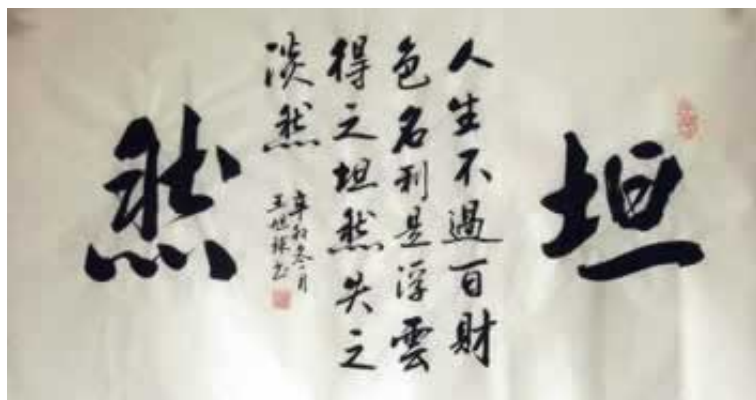 坦
人生不過百財
色名利是浮雲
得之坦然失之
淡然
辛卯冬月
王旭林书
然